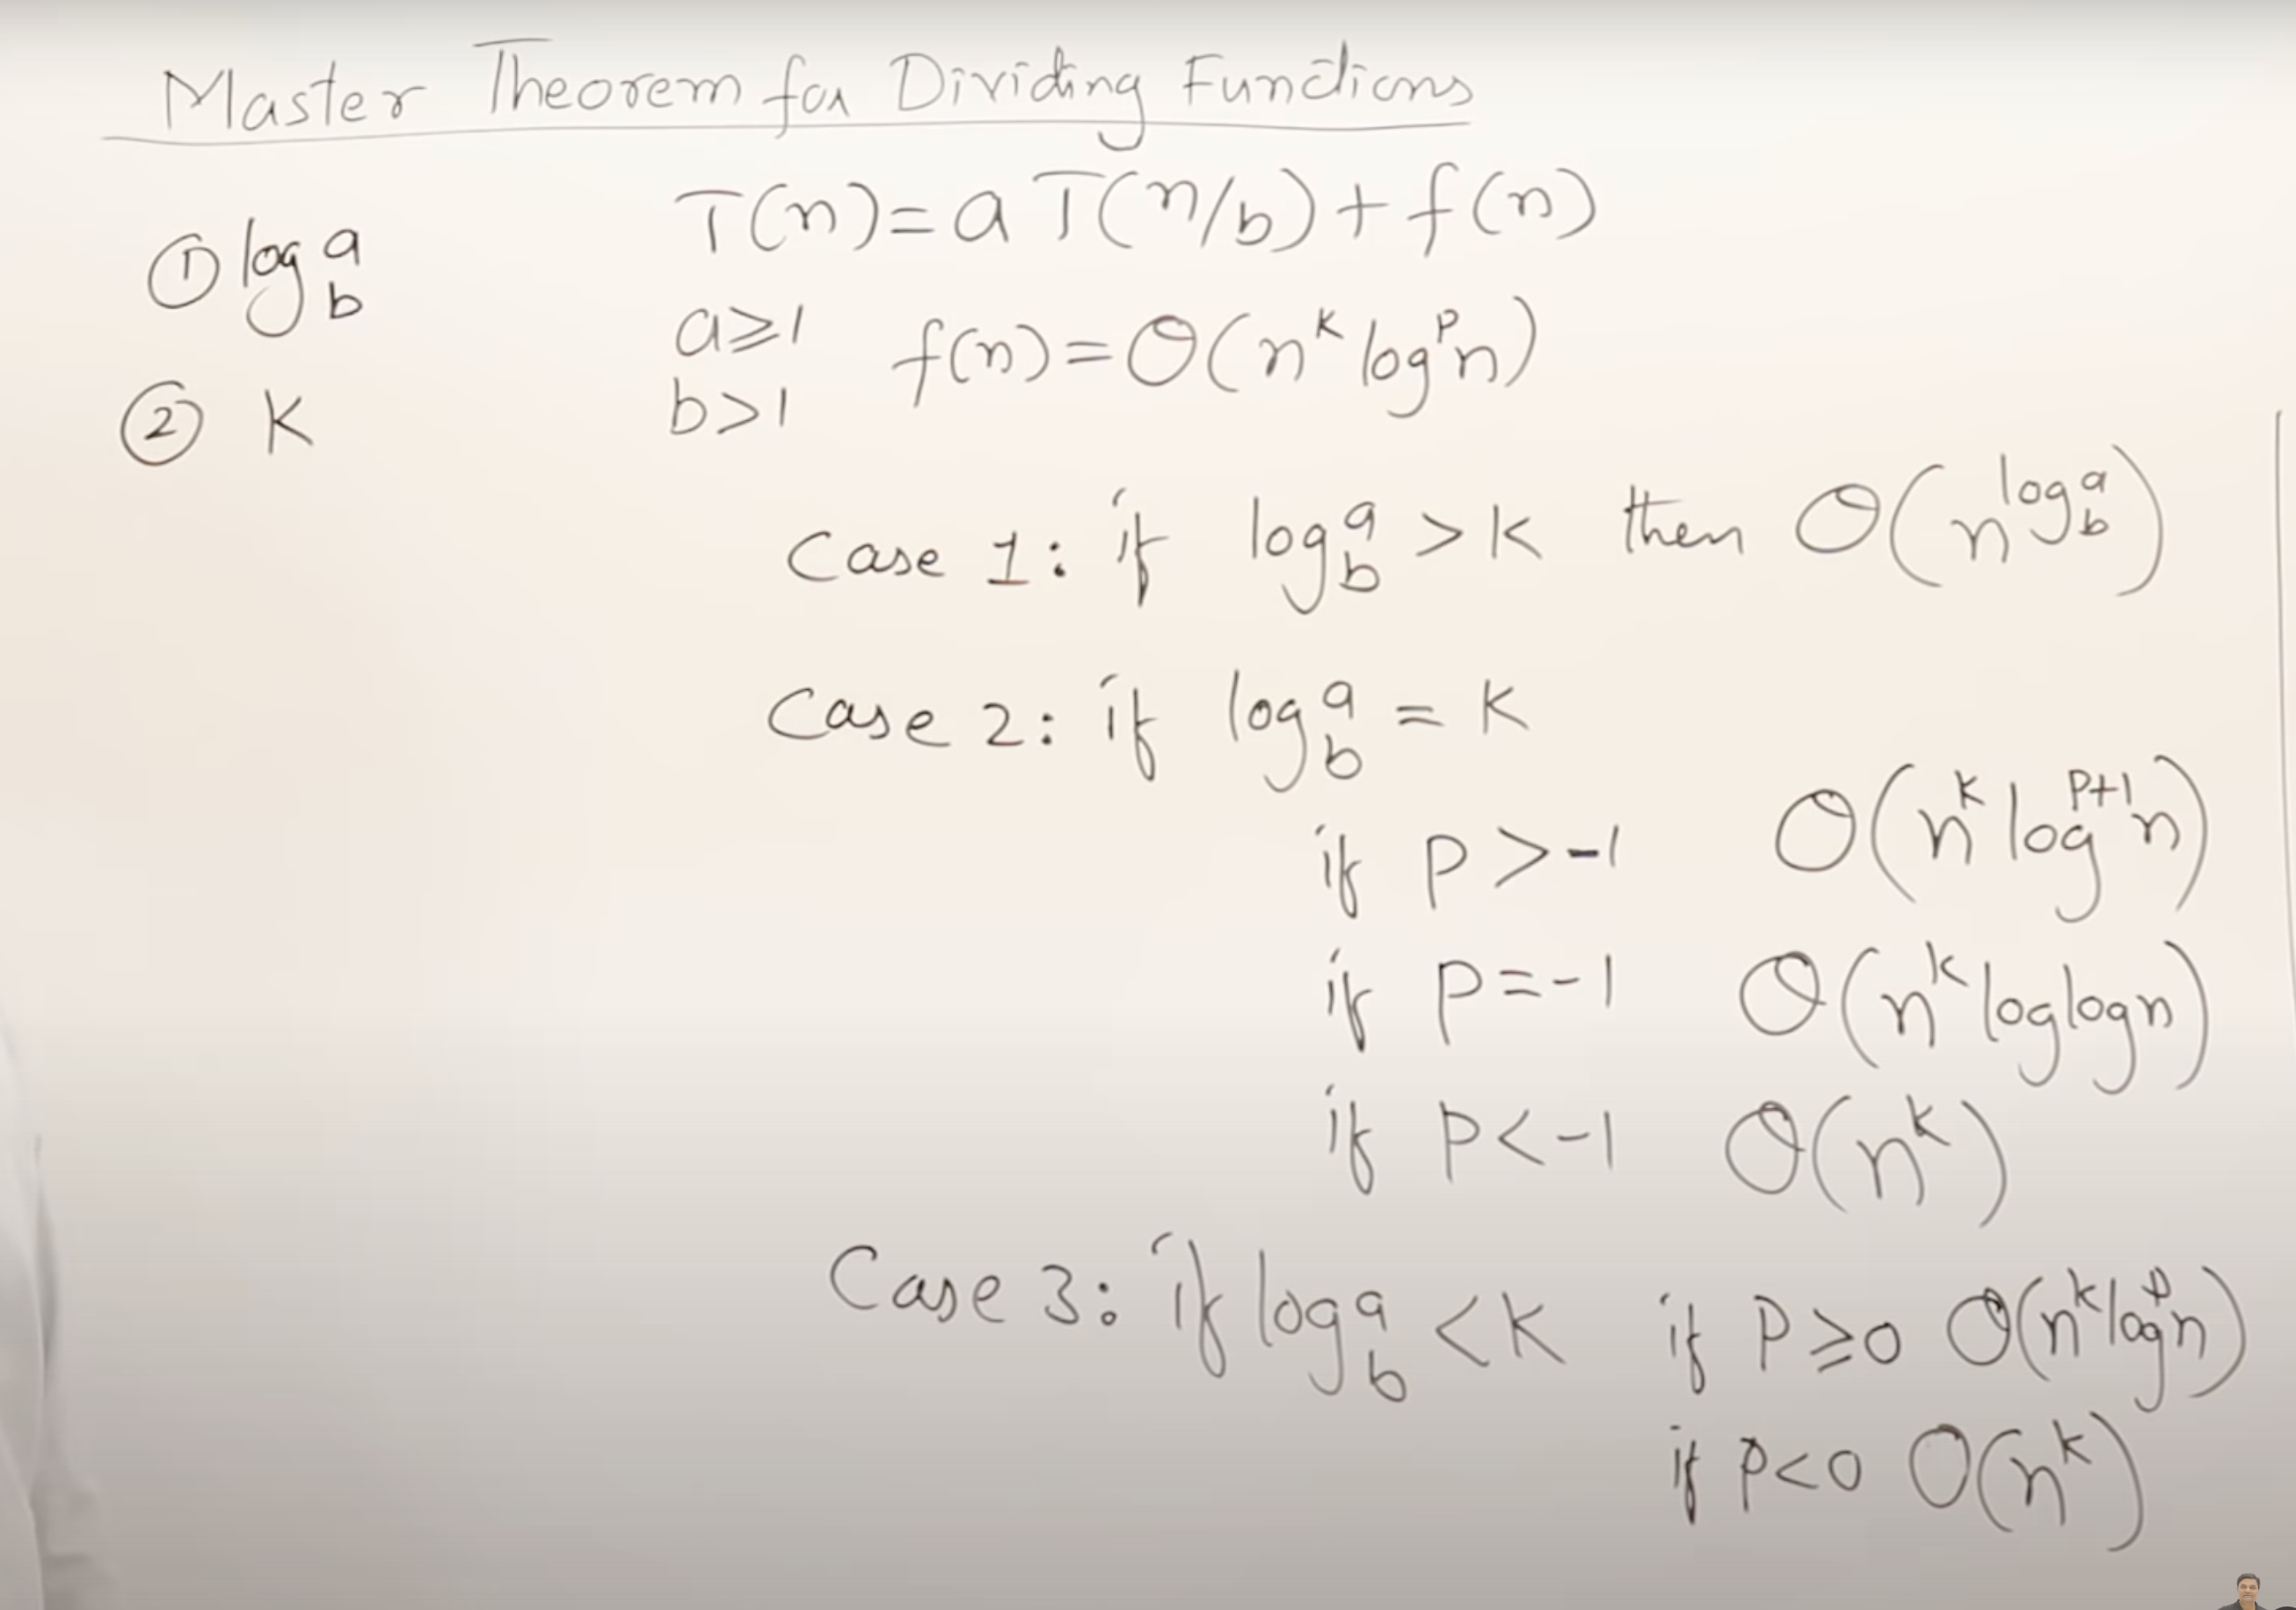 Master Theorem for Dividing Functions
T(n) = a T(n/b) + f(n)
① log_b a
a ≥ 1   f(n) = O(n^k log^p n)
b > 1
② K
Case 1: if log_b a > k then O(n^(log_b a))
Case 2: if log_b a = k
if P > -1   O(n^k log^(p+1) n)
if P = -1   O(n^k log log n)
if P < -1   O(n^k)
Case 3: if log_b a < k   if P ≥ 0   O(n^k log^p n)
if P < 0   O(n^k)